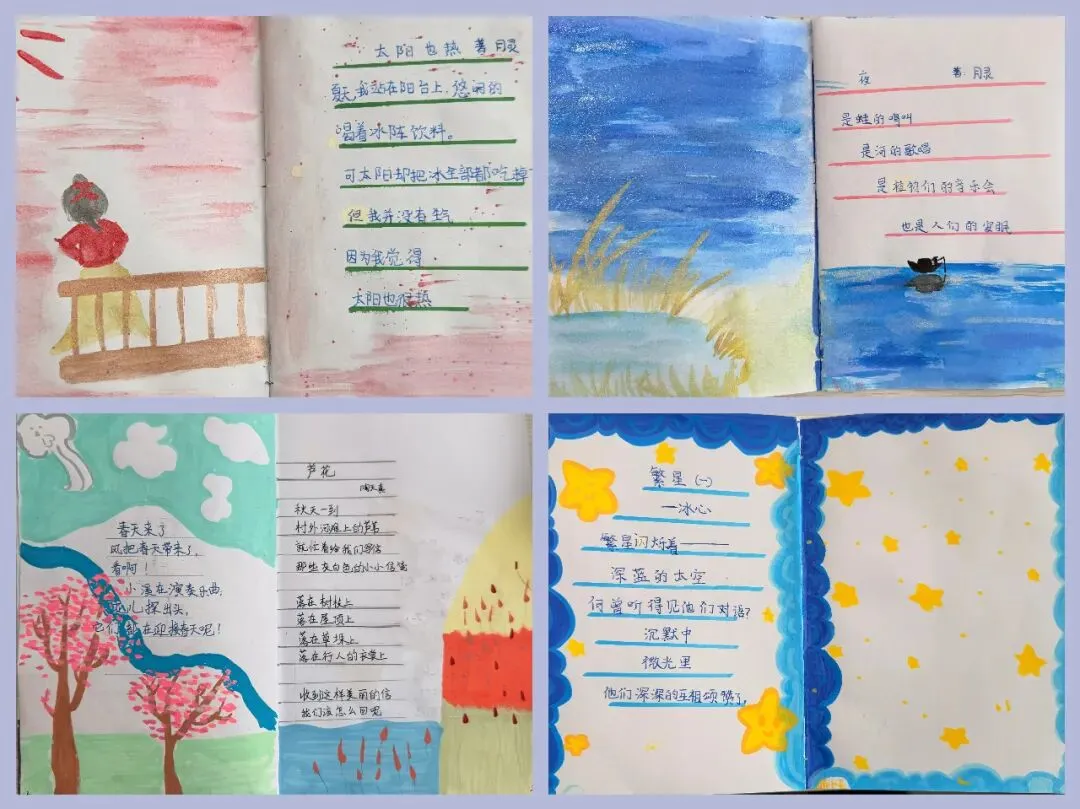 太阳也热 著月灵
夏天,我站在阳台上,悠闲的
喝着冰阵饮料。
可太阳却把冰全部都吃掉
但我并没有生气
因为我觉得
太阳也很热
夜 著月灵
是蛙的鸣叫
是河的歌唱
是植物们的音乐会
也是人们的安眠
春天来了
风把春天带来了,
看啊!
小溪在演奏乐曲,
儿探出头,
们都在迎接春天呢!
芦花
秋天一到
村外河滩上的芦苇
就忙着给我们写信
那些灰白色的小小信笺
落在树枝上
落在屋顶上
落在草垛上
落在行人的衣裳上
收到这样美丽的信
我们该怎么回呢
繁星(一)
—冰心
繁星闪烁着———
深蓝的太空
何曾听得见他们对语?
沉默中
微光里
他们深深的互相颂赞了